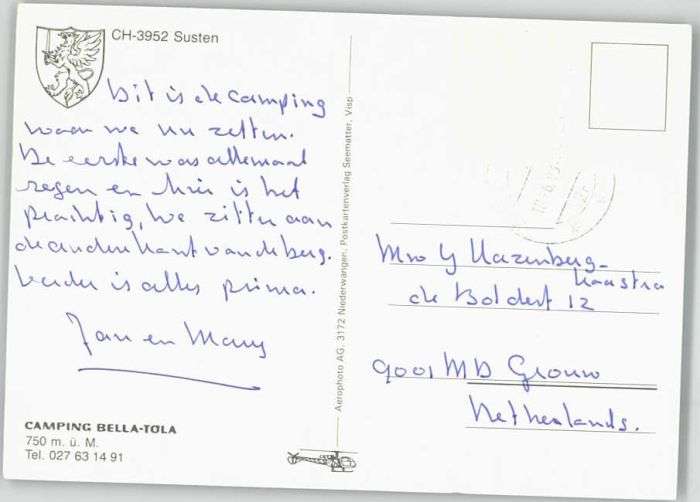 CH-3952 Susten
Dit is de camping
waar we nu zitten.
De eerste was allemaal
regen en hier is het
prachtig, we zitten aan
de andere kant van de berg.
Verder is alles prima.
Jan en Mary
CAMPING BELLA-TOLA
750 m. ü. M.
Tel. 027 63 14 91
Aerophoto AG, 3172 Niederwangen, Postkartenverlag Seematter, Visp
Mw Y Hazenberg-
Haastra
de Boldert 12
9001 MD Grouw
Netherlands.